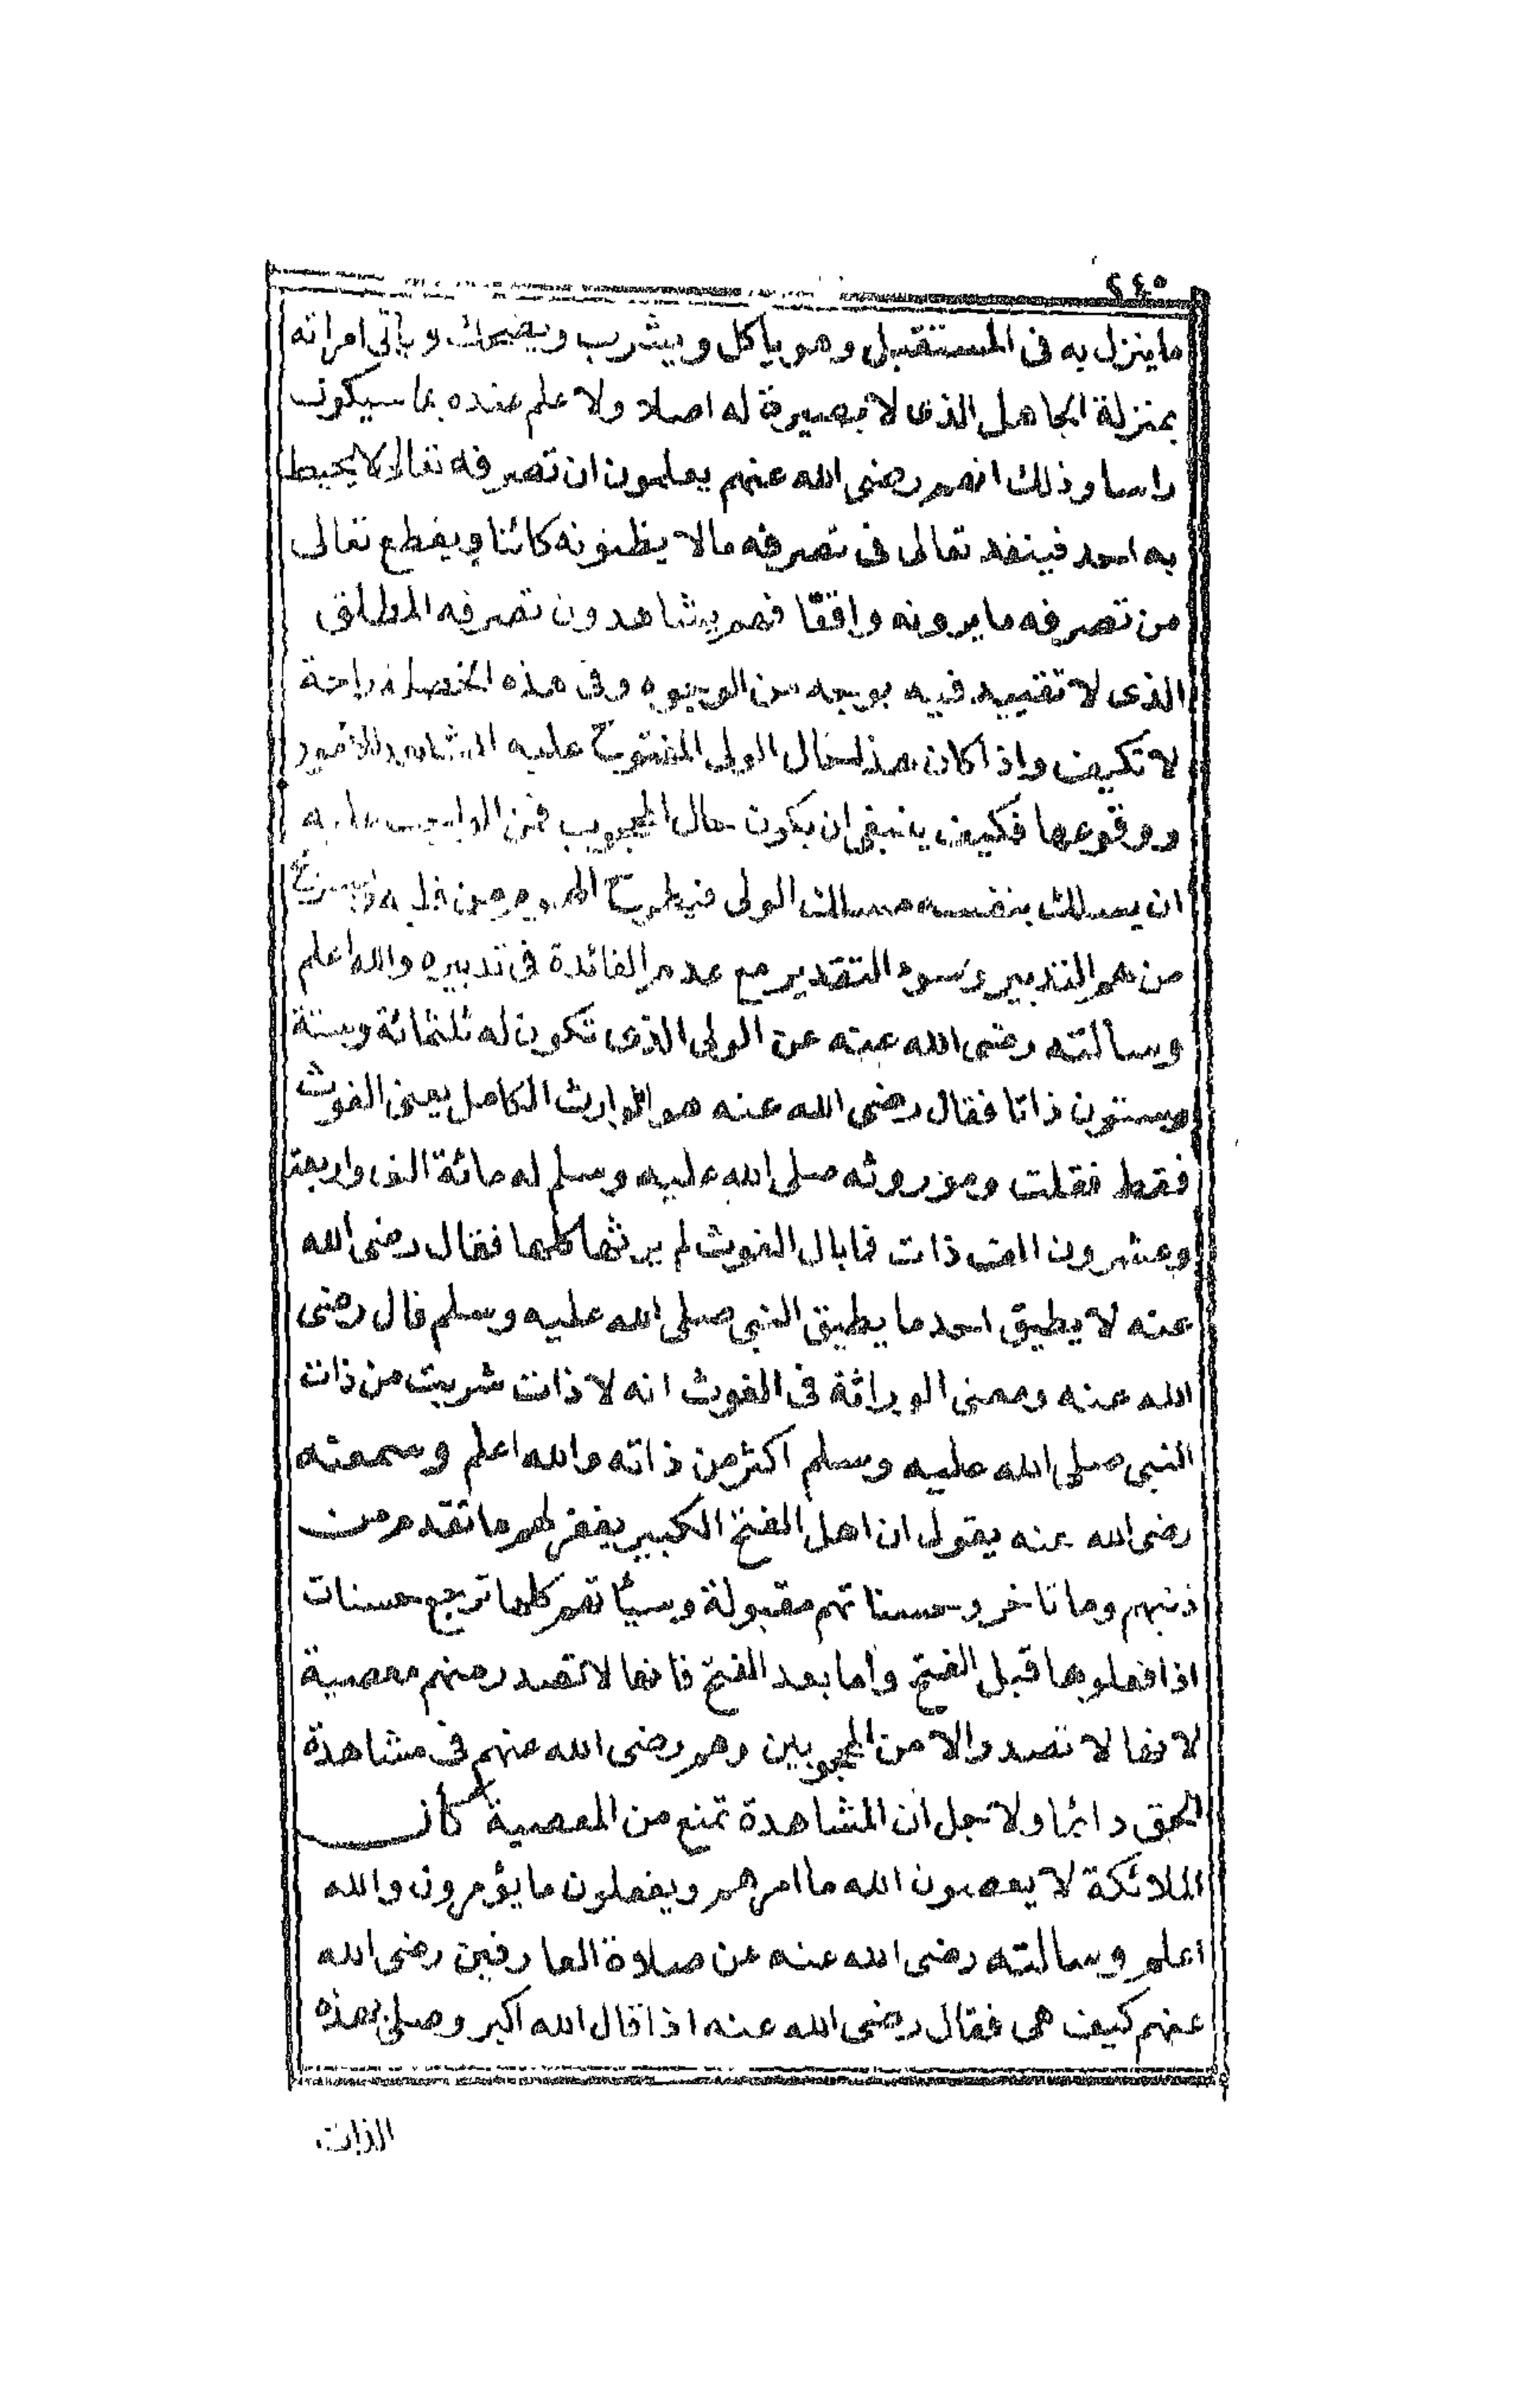 ٢٤٥
ما ينزل به فى المستقبل وهو ياكل ويشرب ويضحك وياتى امراته
بمنزلة الجاهل الذى لا بصيرة له اصلا ولا علم عنده بما سيكون
راسا وذلك انهم رضى الله عنهم يعلمون ان تصرفه تعالى لا يحيط
به احد فينفذ تعالى فى تصرفه مالا يظنونه كائنا ويقطع تعالى
من تصرفه ما يرونه واقعا فهم يشاهدون تصرفه المطلق
الذى لا تقييد فيه بوجه من الوجوه وفى هذه الخصلة راحة
لا تكيف واذا كان هذا حال الولى المفتوح عليه المشاهد للامور
ووقوعها فكيف ينبغى ان يكون حال المحجوب فمن الواجب عليه
ان يسلك بنفسه مسالك الولى فيطرح الهموم من قلبه
من هم التدبير وسوء التقدير مع عدم الفائدة فى تدبيره والله اعلم
وسالته رضى الله عنه عن الولى الذى تكون له ثلثمائة وستة
وستون ذاتا فقال رضى الله عنه هو الوارث الكامل يعنى الغوث
فقط فقلت وموروثه صلى الله عليه وسلم له مائة الف واربعة
وعشرون الف ذات فما بال الغوث لم يرثها كلها فقال رضى الله
عنه لا يطيق احد ما يطيق النبى صلى الله عليه وسلم قال رضى
الله عنه ومعنى الوراثة فى الغوث انه لا ذات شربت من ذات
النبى صلى الله عليه وسلم اكثر من ذاته والله اعلم وسمعته
رضى الله عنه يقول ان اهل الفتح الكبير يغفر لهم ما تقدم من
ذنبهم وما تاخر وحسناتهم مقبولة وسيئاتهم كلها ترجع حسنات
اذا فعلوها قبل الفتح واما بعد الفتح فانها لا تصدر منهم معصية
لانها لا تصدر الا من المحجوبين وهم رضى الله عنهم فى مشاهدة
الحق دائما ولاجل ان المشاهدة تمنع من المعصية كان
الملائكة لا يعصون الله ما امرهم ويفعلون ما يؤمرون والله
اعلم وسالته رضى الله عنه عن صلاة العارفين رضى الله
عنهم كيف هى فقال رضى الله عنه اذا قال الله اكبر وصلى بهذه
الذات